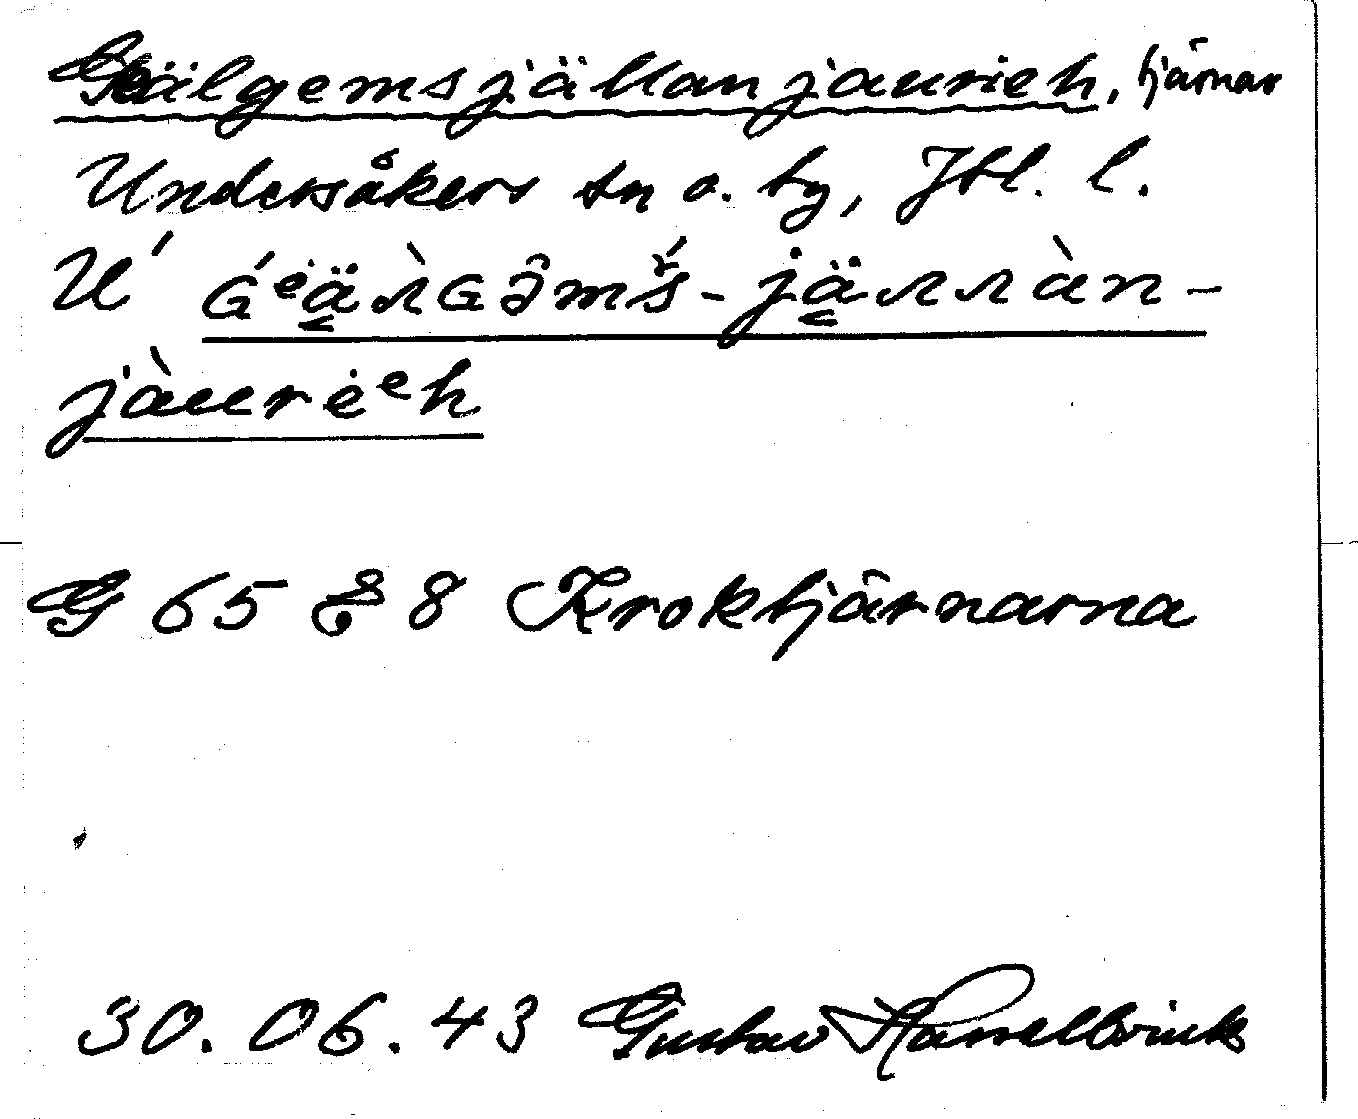 Geälgemsjällanjaurieh, tjärnar
Undersåkers sn o. by, Jtl. l.
U ́ ɢ́ᵉä̤ʌɢə̂mš́-jä̤ʌʌàn-
jàurėᵉh
G 65 E 8 Kroktjärnarna
30.06.43 Gustav Hasselbrink